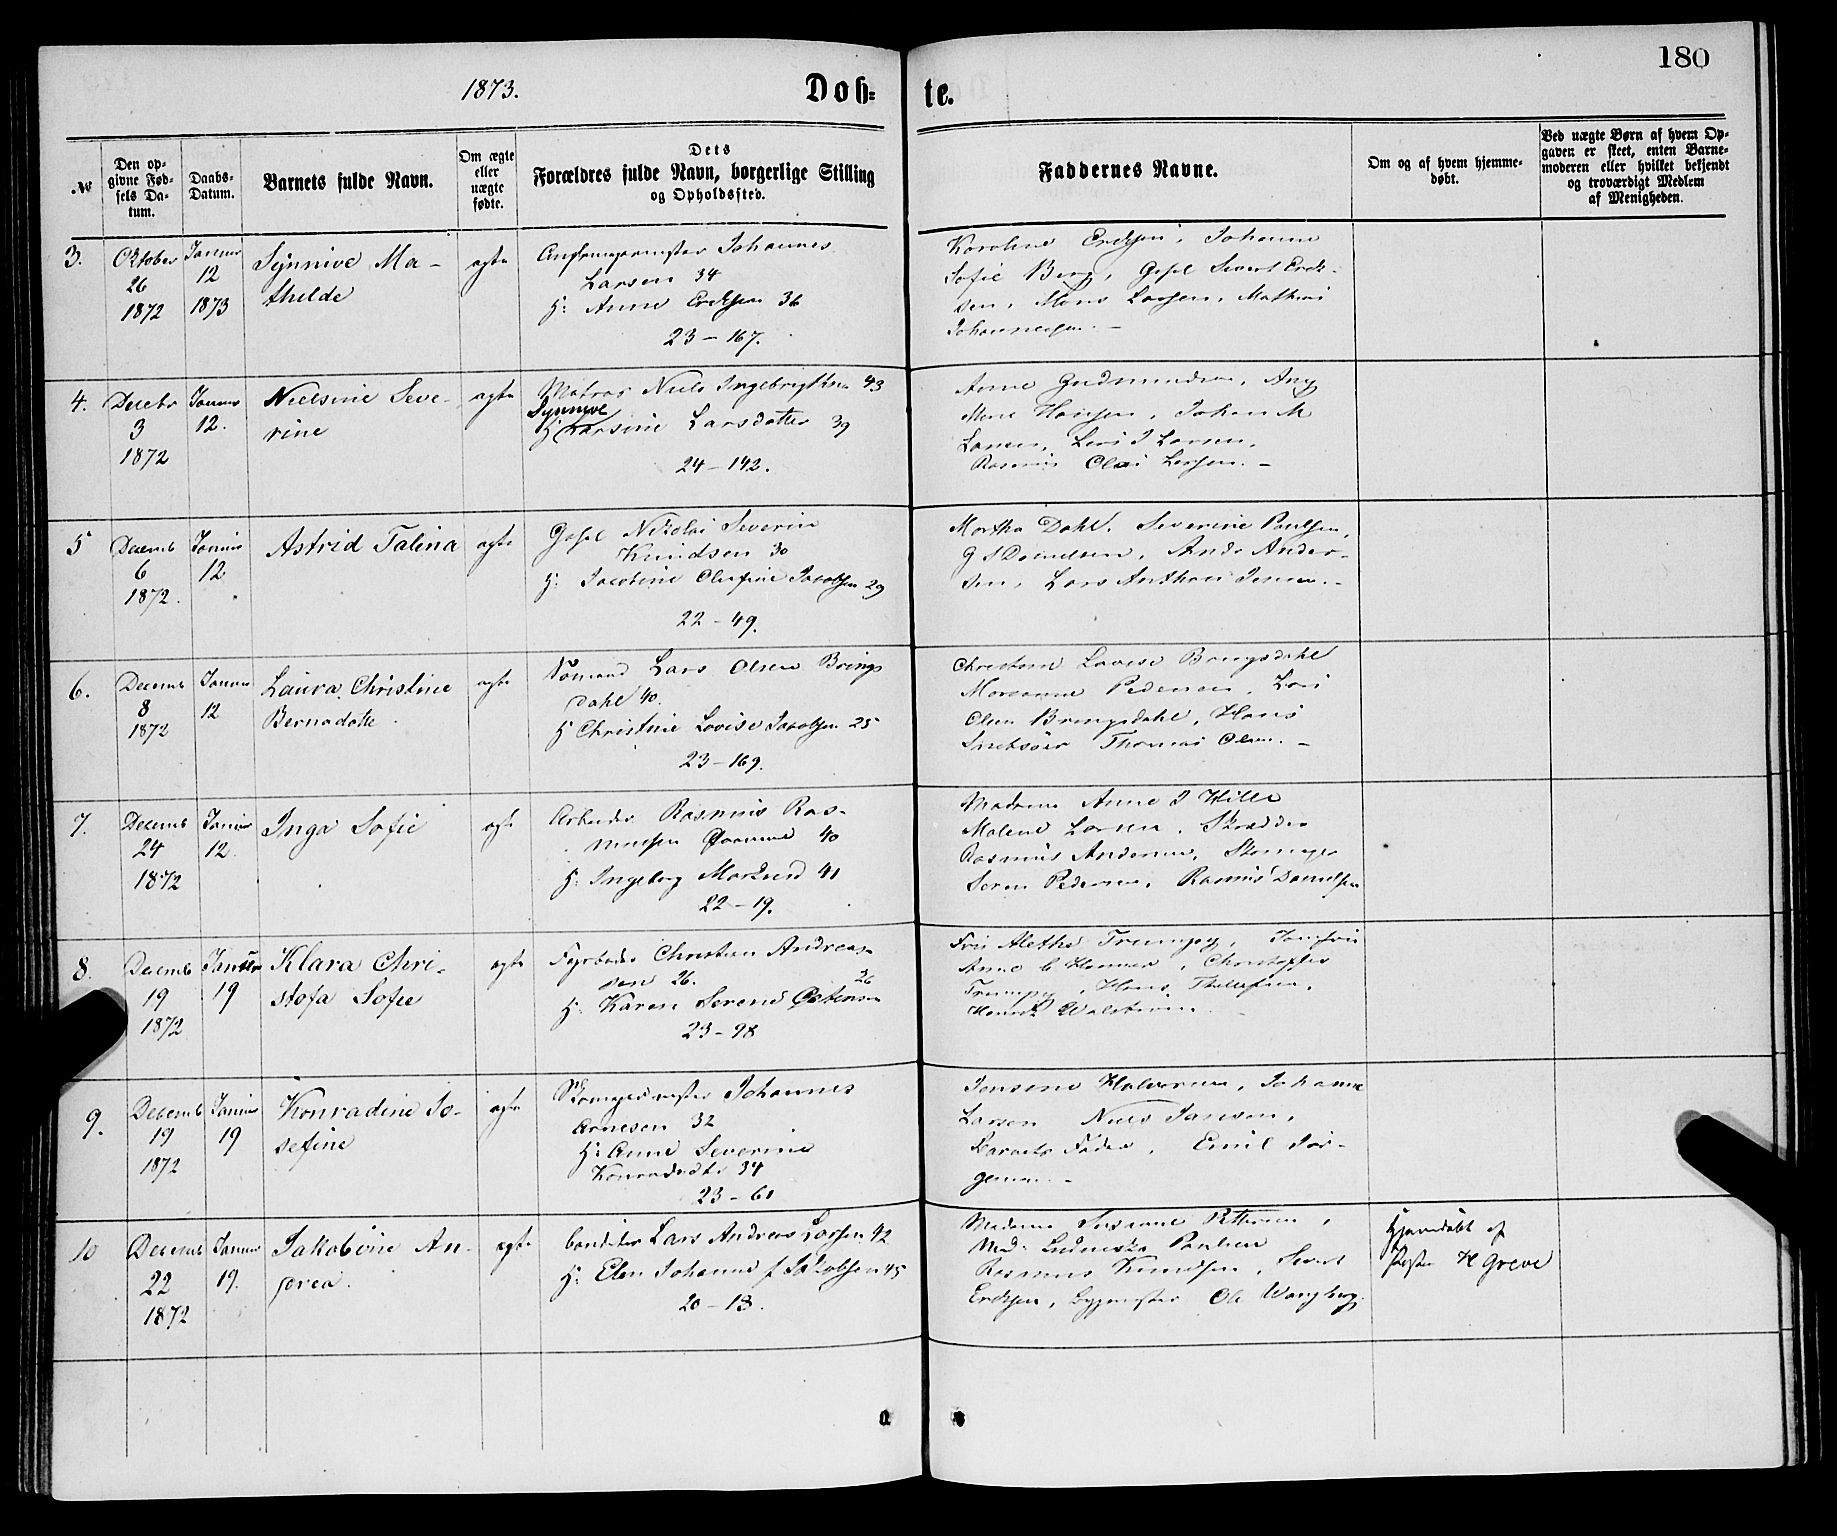 180
1873.
Døb= te.
№
Den op-
givne Fød-
sels Da-
tum.
Daabs-
Datum.
Barnets fulde Navn.
Om ægte
eller
uægte
fødte.
Dets
Forældres fulde Navn, borgerlige Stilling
og Opholdssted.
Faddernes Navne.
Om og af hvem hjemme-
døbt.
Ved uægte Børn af hvem Op-
gaven er skeet, enten Barne-
moderen eller hvilket bekjendt
og troværdigt Medlem
af Menigheden.
3.
Oktober
26
1872
Januar
12
1873
Synnive Ma-
thilde
ægte
Johannes
Larsen 34
H: Anne Eriksen 36
23-167.
Karoline Eriksen, Johanne
Sofie Berg, Gesel Sivert Erik-
sen, Mons Larsen, Mathias
Johannesen.-
4.
Decebr
3
1872
Januar
12.
Nielsine Seve-
rine
ægte
Matros Niels Ingebrigtsen 43
Synnive
H Larsine Larsdatter 39
24-142.
Anne Gudmundsen,
Hansen, Johan M
Larsen, Lars J Larsen,
Rasmus Olai Larsen.-
5
Decemb
6
1872.
Januar
12
Astrid Talina
ægte
Gesel Nikolai Severin
Knudsen 30
H: Jacobine Olufine Jacobsen 29
22-49.
Martha Dahl, Severine Paulsen,
G S Danielsen, Ands Ander-
sen, Lars Anthon Jensen.-
6.
Decemb
8
1872
Januar
12
Laura Christine
Bernadotte.
ægte
Sømand Lars Olsen Brings
dahl 40.
H Christine Lovise Jacobsen 25
23-169.
Christine Lovise Bringsdahl
Marianne Pedersen, Lars
Olsen Bringsdahl, Hans
Thomas Olsen.-
7.
Decemb
24
1872
Januar
12.
Inga Sofie
ægte
Arbeider Rasmus Ras-
musen 40
H: Ingeborg Markusd 41
22-19.
Madame Anne J Hille
Malene Larsen, Skrædder
Rasmus Andersen, Skomager
Søren Pedersen, Rasmus Danielsen
8.
Decemb
19
1872
Januar
19
Klara Chri-
stofa Sofie
ægte
Fyrbøder Christian Andreas-
sen 26.
26
H: Karen Serene Østensen
23-98
Fru Alethe Trumpy, Jomfru
Anne C Hammer, Christoffer
Trumpy, Hans Thollefsen,
Henrik
9.
Decemb
19
1872
Januar
19
Konradine Jo-
sefine
ægte
Skomagermester Johannes
Arnesen 32
H: Anne Severine
Konradsdtr 34
23-61
Jensine Halvorsen, Johanne
Larsen Niels Jansen,
Barnets Fader, Emil Jør-
gensen.-
10
Decemb
22
1872
Januar
19.
Jakobine An-
drea.
ægte
Conditor Lars Andreas Larsen 42
H: Elen Johanne f Jakobsen 45
20-13.
Madame Susanne Pettersen,
Mad. Paulsen
Rasmus Knudsen, Sivert
Eriksen, Bygmester Ole Wangberg.
Hjemdøbt af
Præsten H Greve